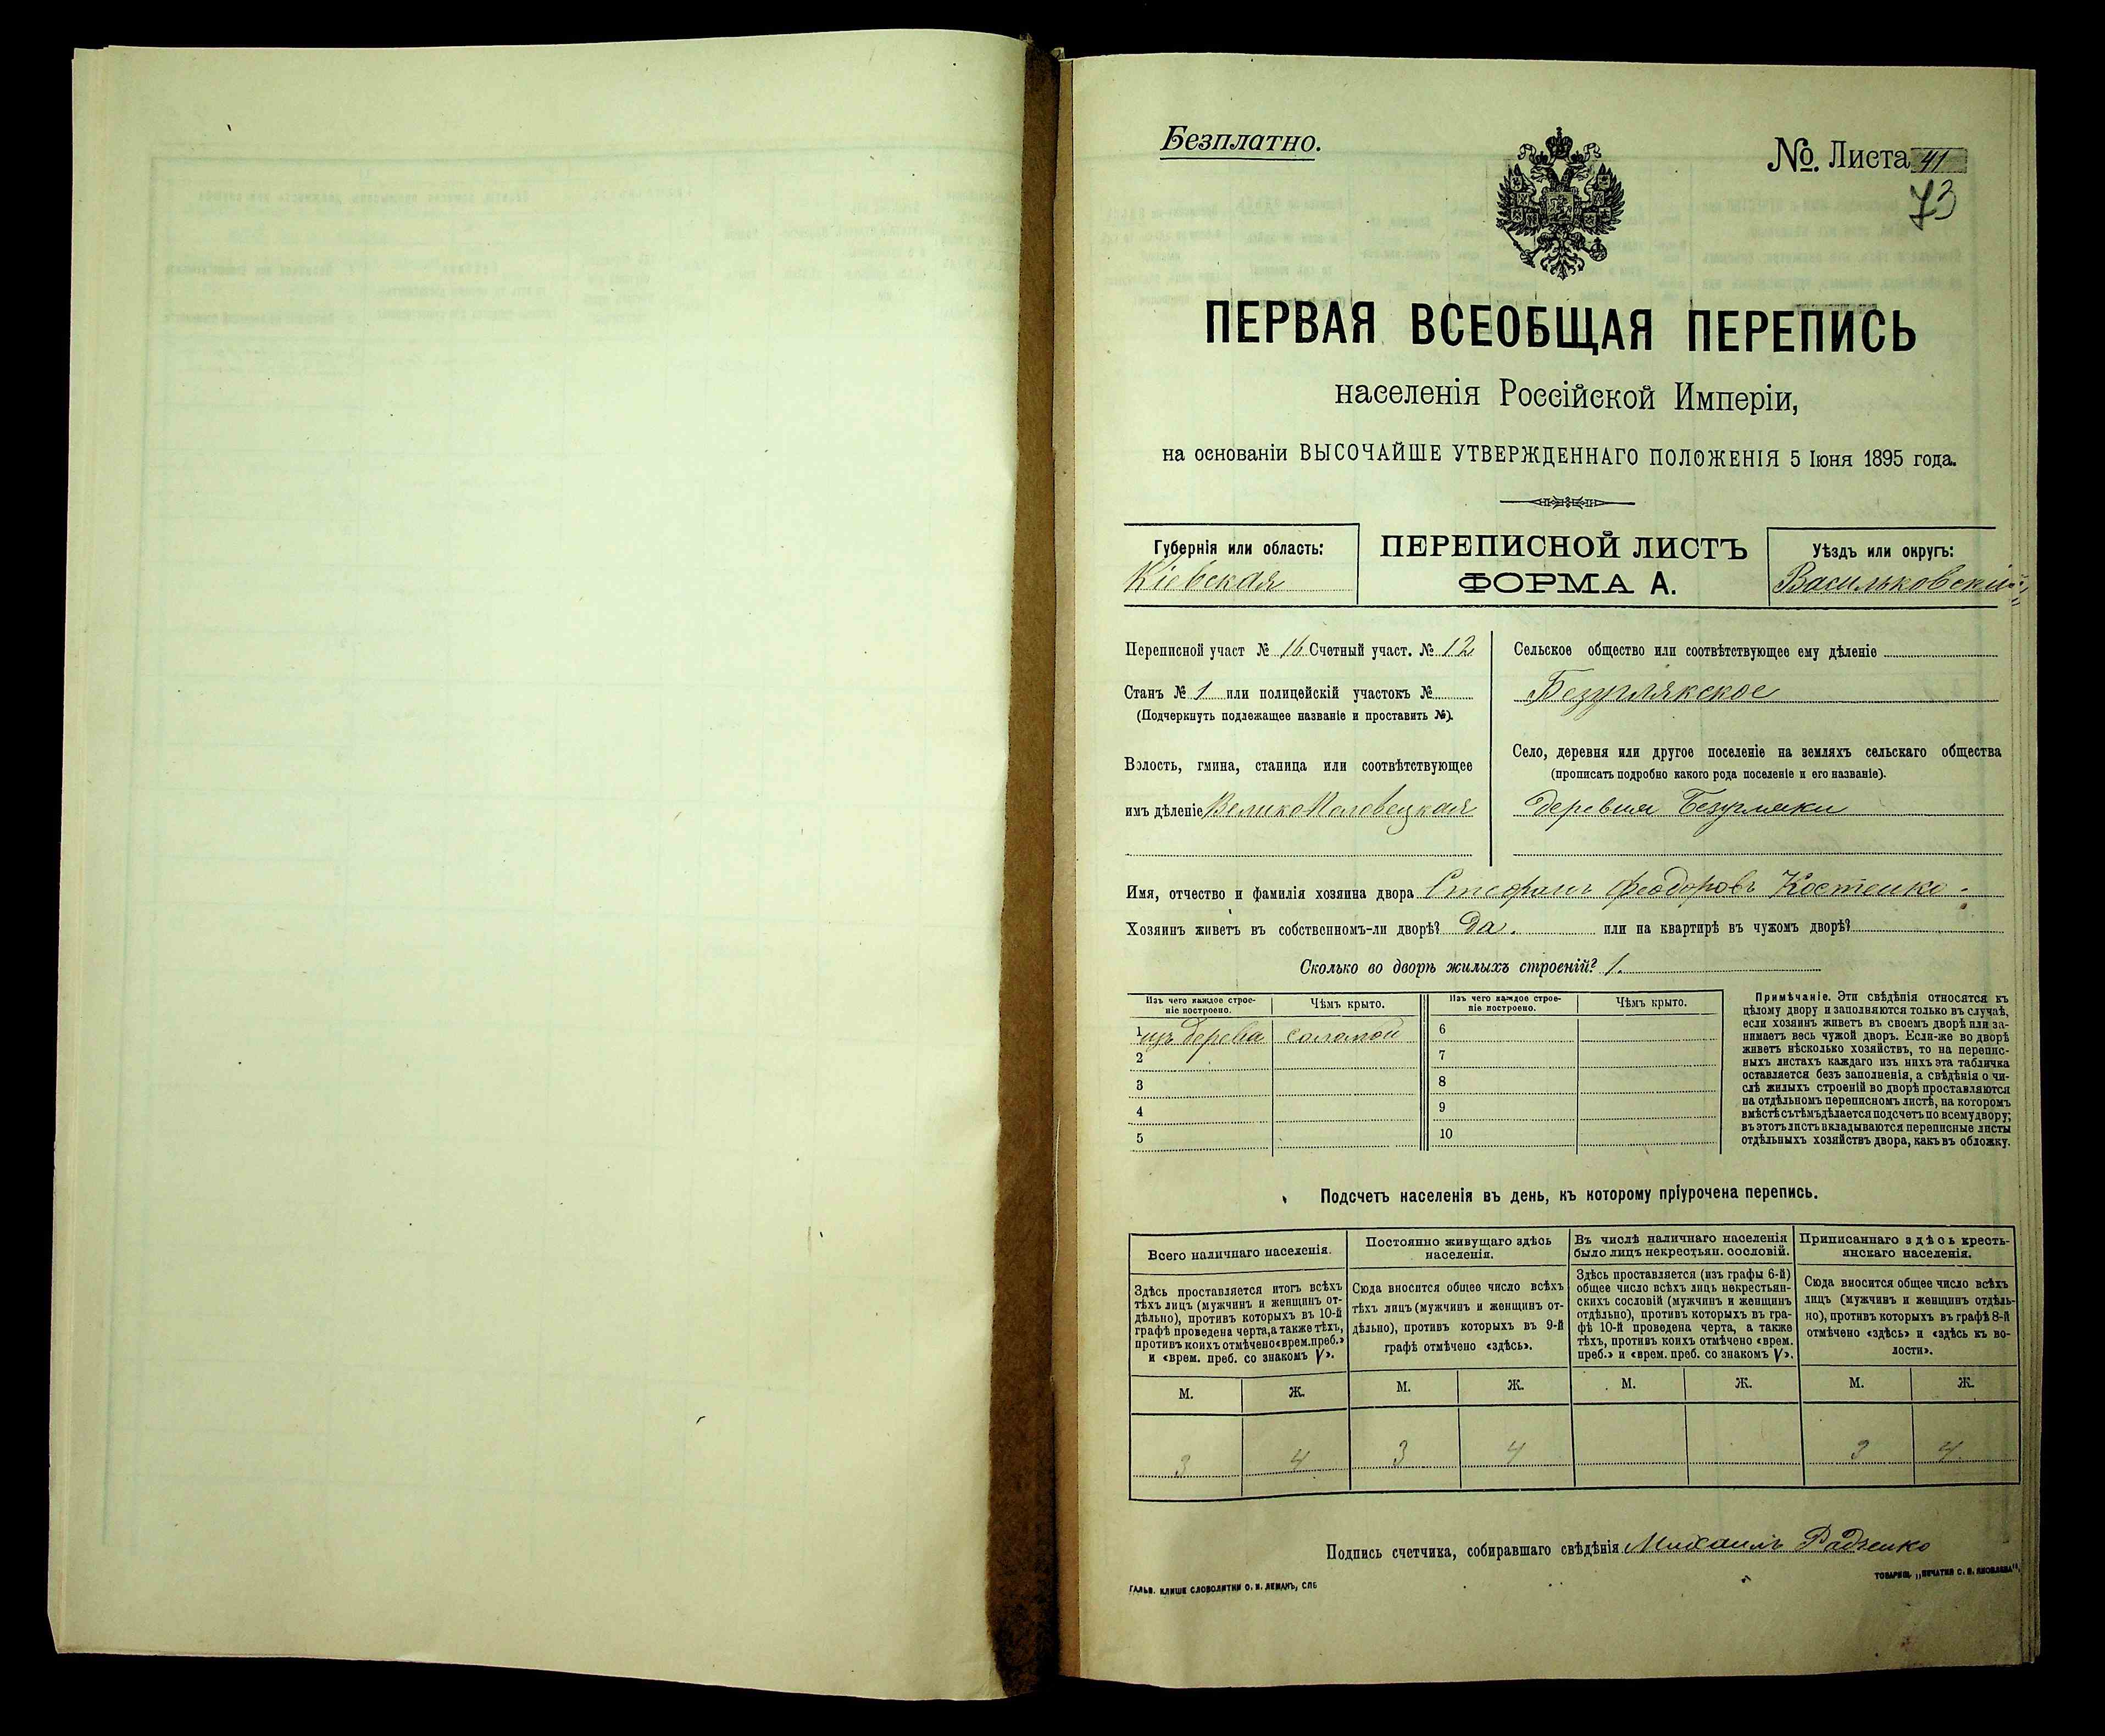 Безплатно.
№. Листа 41
73
ПЕРВАЯ ВСЕОБЩАЯ ПЕРЕПИСЬ
населенія Россійской Имперіи,
на основаніи ВЫСОЧАЙШЕ УТВЕРЖДЕННАГО ПОЛОЖЕНІЯ 5 Іюня 1895 года.
Губернія или область:
Кіевская
ПЕРЕПИСНОЙ ЛИСТЪ
ФОРМА А.
Уѣздъ или округъ:
Васильковскій
Переписной участ № 16 Счетный участ. № 12
Станъ № 1 или полицейскій участокъ №
(Подчеркнуть подлежащее названіе и проставить №).
Волость, гмина, станица или соотвѣтствующее
имъ дѣленіе ВеликоПоловецкая
Сельское общество или соотвѣтствующее ему дѣленіе
Безуглякское
Село, деревня или другое поселеніе на земляхъ сельскаго общества
(прописать подробно какого рода поселеніе и его названіе).
деревня Безугляки
Имя, отчество и фамилія хозяина двора Стефанъ Феодоровъ Костенко
Хозяинъ живетъ въ собственномъ-ли дворѣ? Да. или на квартирѣ въ чужомъ дворѣ?
Сколько во дворѣ жилыхъ строеній? 1.
Изъ чего каждое строе-
ніе построено.
Чѣмъ крыто.
Изъ чего каждое строе-
ніе построено.
Чѣмъ крыто.
1 изъ дерева соломой 6
2 7
3 8
4 9
5 10
Примѣчаніе. Эти свѣдѣнія относятся къ
цѣлому двору и заполняются только въ случаѣ,
если хозяинъ живетъ въ своемъ дворѣ или за-
нимаетъ весь чужой дворъ. Если-же во дворѣ
живетъ нѣсколько хозяйствъ, то на перепис-
ныхъ листахъ каждаго изъ нихъ эта табличка
оставляется безъ заполненія, а свѣдѣнія о чи-
слѣ жилыхъ строеній во дворѣ проставляются
на отдѣльномъ переписномъ листѣ, на которомъ
вмѣстѣ съ тѣмъ дѣлается подсчетъ по всему двору;
въ этотъ листъ вкладываются переписные листы
отдѣльныхъ хозяйствъ двора, какъ въ обложку.
Подсчетъ населенія въ день, къ которому пріурочена перепись.
Всего наличнаго населенія.
Здѣсь проставляется итогъ всѣхъ
тѣхъ лицъ (мужчинъ и женщинъ от-
дѣльно), противъ которыхъ въ 10-й
графѣ проведена черта, а также тѣхъ,
противъ коихъ отмѣчено «врем. преб.»
и «врем. преб. со знакомъ V».
Постоянно живущаго здѣсь
населенія.
Сюда вносится общее число всѣхъ
тѣхъ лицъ (мужчинъ и женщинъ от-
дѣльно), противъ которыхъ въ 9-й
графѣ отмѣчено «здѣсь».
Въ числѣ наличнаго населенія
было лицъ некрестьян. сословій.
Здѣсь проставляется (изъ графы 6-й)
общее число всѣхъ лицъ некрестьян-
скихъ сословій (мужчинъ и женщинъ
отдѣльно), противъ которыхъ въ гра-
фѣ 10-й проведена черта, а также
тѣхъ, противъ коихъ отмѣчено «врем.
преб.» и «врем. преб. со знакомъ V».
Приписаннаго здѣсь кресть-
янскаго населенія.
Сюда вносится общее число всѣхъ
лицъ (мужчинъ и женщинъ отдѣль-
но), противъ которыхъ въ графѣ 8-й
отмѣчено «здѣсь» и «здѣсь въ во-
лости».
М. Ж. М. Ж. М. Ж. М. Ж.
3 4 3 4 3 4
Подпись счетчика, собиравшаго свѣдѣнія Михаилъ Радзенко
ГАЛЬВ. КЛИШЕ СЛОВОЛИТНИ О. И. ЛЕМАНЪ, СПБ
ТОВАРИЩ. „ПЕЧАТНЯ С. П. ЯКОВЛЕВА“.